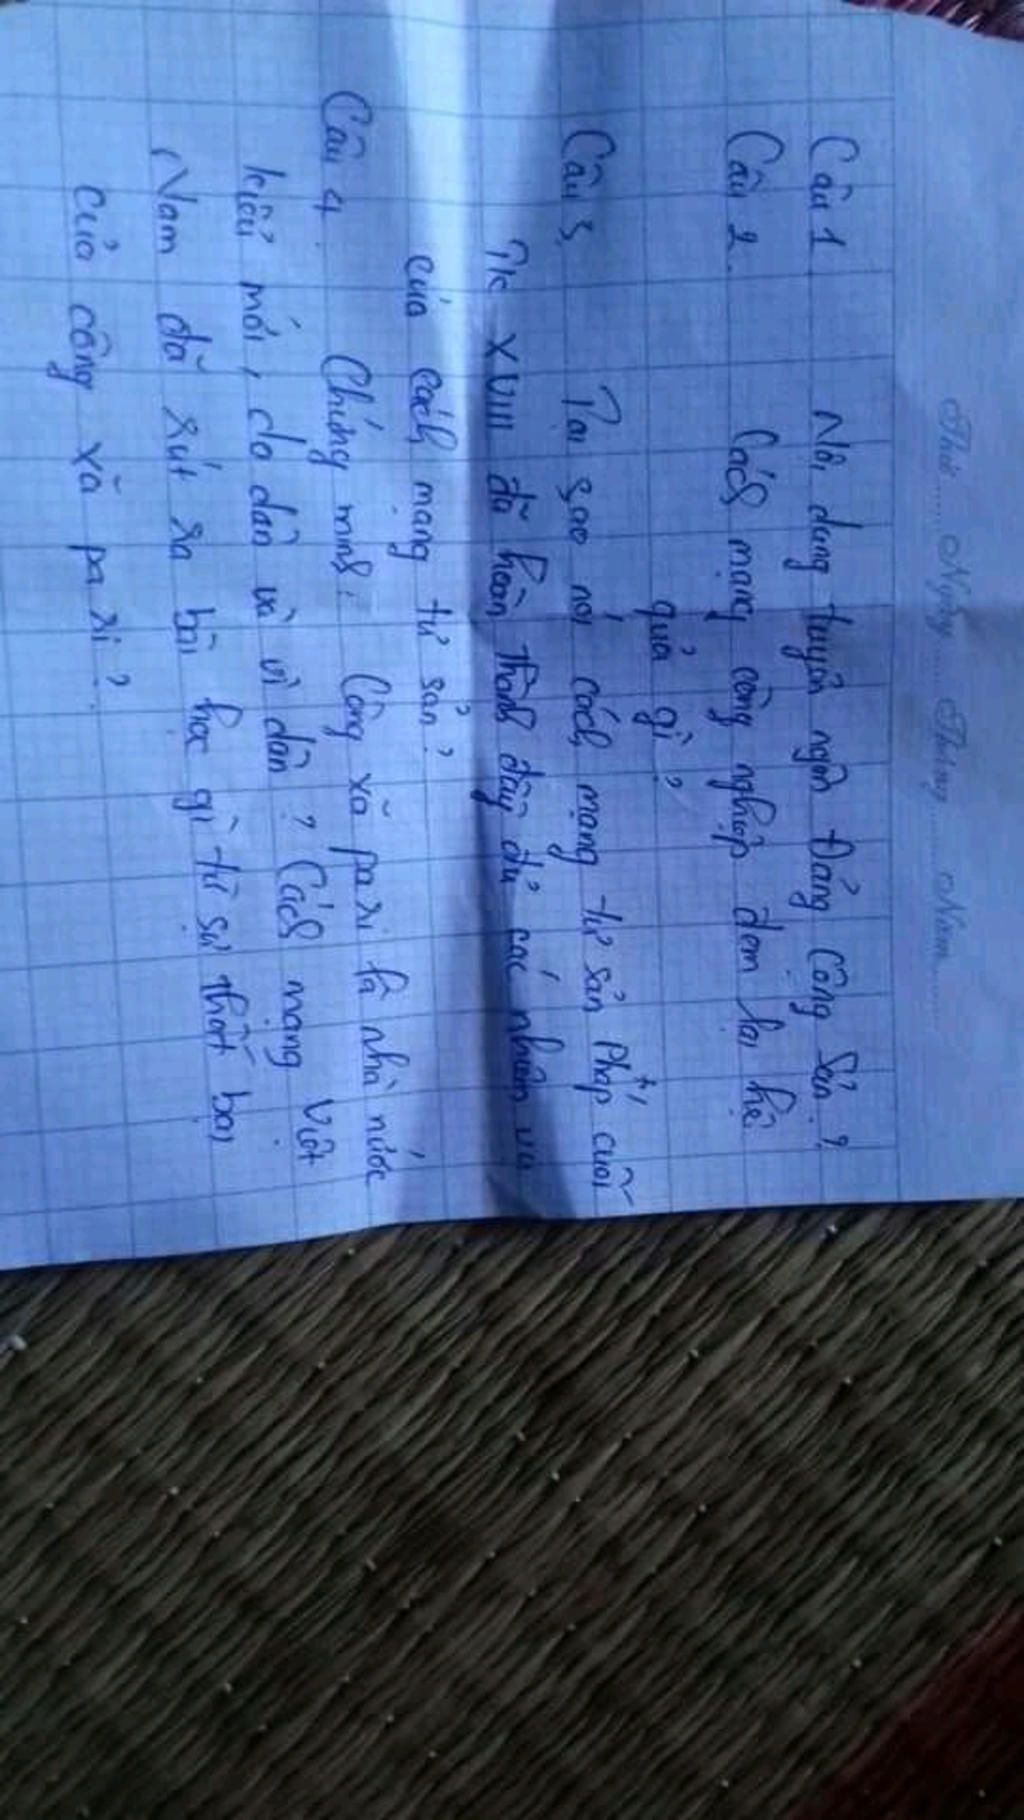 Thứ....... Ngày....... Tháng....... Năm..........
Câu 1 Nội dung tuyên ngôn Đảng Cộng Sản ?
Câu 2. Cách mạng công nghiệp đem lại hệ
quả gì ?
Câu 3. Tại sao nói cách mạng tư sản Pháp cuối
TK XVIII đã hoàn thành đầy đủ các nhiệm vụ
của cách mạng tư sản ?
Câu 4. Chứng minh : Công xã pa ri là nhà nước
kiểu mới, do dân và vì dân ? Cách mạng Việt
Nam đã rút ra bài học gì từ sự thất bại
của công xã pa ri ?